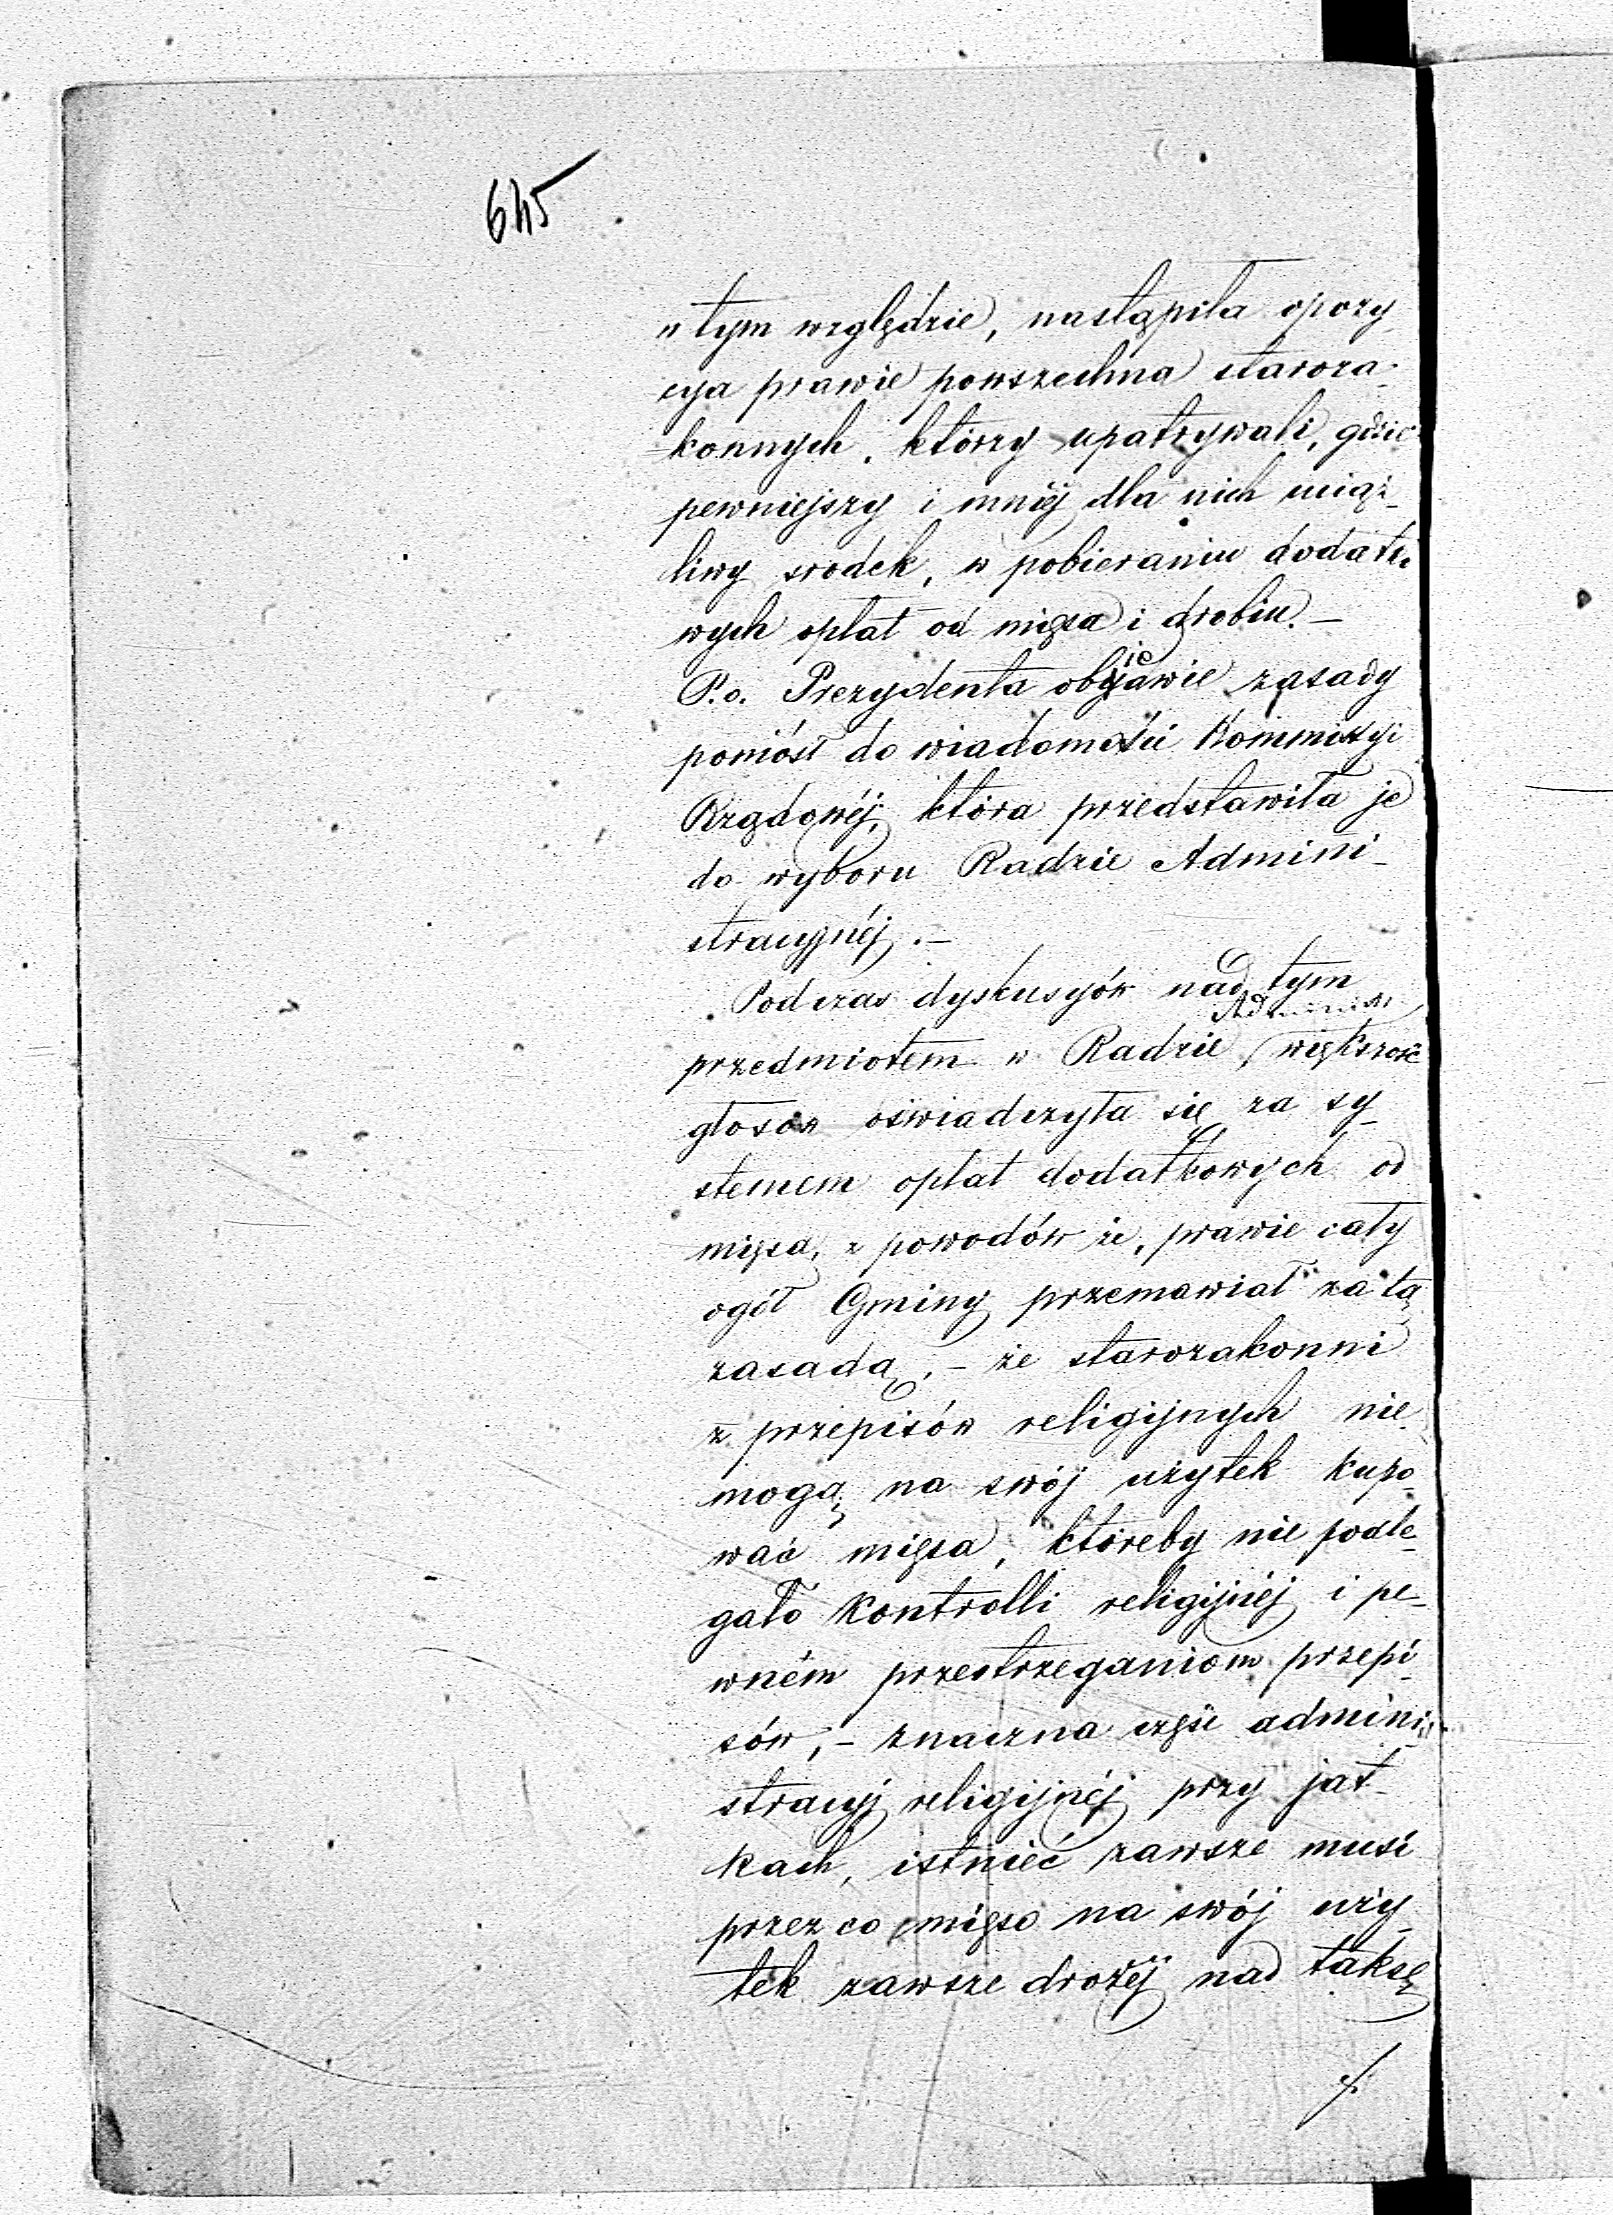 645
w tym względzie, nastąpiła opozy-
cya prawie powszechna staroza-
konnych, którzy upatrywali,
pewniejszy i mniéj dla nich uciąż-
liwy srodek, w pobieraniu dodatko
wych opłat od mięsa i drobiu. –
P.o. Prezydenta obiedwie zasady
poniósł do wiadomości Kommissyi
Rządowéj, która przedstawiła je
do wyboru Radzie Admini-
stracyjnéj. –
Podczas dyskusyów nad tym
przedmiotem w Radzie Administr: większość
głosów oświadczyła się za sy-
stemem opłat dodatkowych od
mięsa, z powodów że, prawie cały
ogół Gminy przemawiał za tą
zasadą, – że starozakonni
z przepisów religijnych nie
mogą na swój użytek kupo-
wać mięsa, któreby nie podle-
gało kontrolli religijnéj i pe-
wném przestrzeganiom przepi-
sów, – znaczna część admini-
stracyj religijnéj przy jat-
kach, istnieć zawsze musi
przez co mięso na swój uży-
tek zawsze drożéj nad taksę
./.